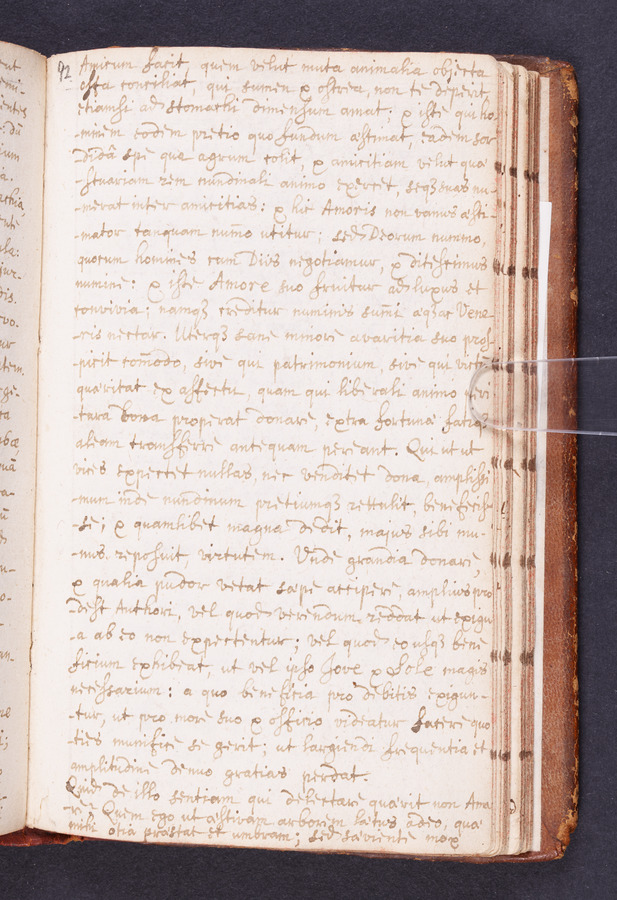 92
Amicum facit, quem velut muta animalia objecta
esca conciliat, qui sumen & ostrea, non te deperit
etiamsi ad stomachi dimensum amat; & iste qui ho-
-minem eodem pretio quo fundum æstimat, eadem sor-
-didâ spe qua agrum colit, & amicitiam velut quæ-
-stuariam rem nundinali animo exercet, seqz suas nu-
-merat inter amicitias: & hic Amoris non vanus æsti-
-mator tanquam nummo utitur; sed Deorum nummo,
quorum homines cum Diis negotiamur, & ditescimus
numine: & iste Amore suo fruitur ad lupus et
convivia; namqz creditur numinis sum̄i æqz ac Vene-
-ris nectar. Uterqz sane minore avaritia suo pros-
-picit com̄odo, sive qui patrimonium, sive qui
quæritat ex affectu, quam qui liberali animo
bona properat donare, extra fortunæ
aleam transferre antequam pereant. Qui ut ut
vices expectet nullas, nec venditet dona, amplissi-
-mum inde nundinum pretiumqz rettulit, benefecis-
-se; & quamlibet magna dedit, majus sibi mu-
-nus reposuit, virtutem. Unde grandia donare,
& qualia pudor vetat sæpe accipere, amplius pro-
-dest Authori, vel quod verendum reddat ut exigu-
-a ab eo non expectentur; vel quod eousqz bene-
ficium exhibeat, ut vel ipso Jove & Sole magis
necessarium: a quo beneficia pro debitis exigun-
-tur, ut pro more suo & officio videatur facere quo-
-ties munifice se gerit; ut largiendi frequentia et
amplitudine demo gratias perdat.
Quid de illo sentiam qui delectare quærit non Ama-
-re? Quem ego ut æstivam arborem lætus adeo, quæ
mihi otia præstat et umbram; sed sæviente mox